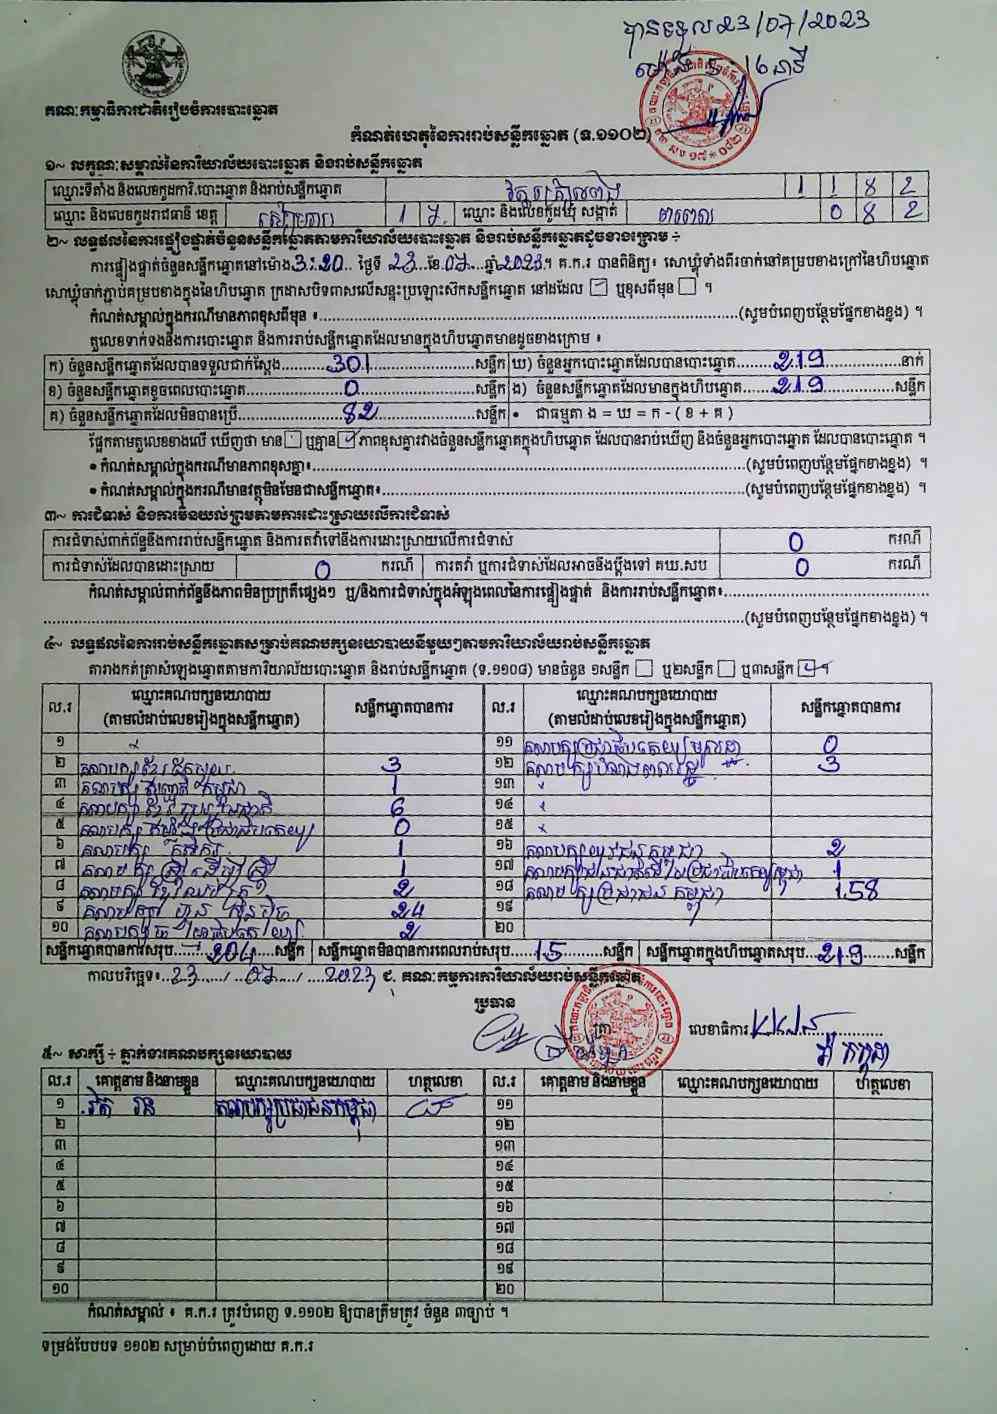 បានទទួល 23/07/2023
គណៈកម្មាធិការជាតិរៀបចំការបោះឆ្នោត
កំណត់ហេតុនៃការរាប់សន្លឹកឆ្នោត (ទ.១១០២)
១~ លក្ខណៈសម្គាល់នៃការិយាល័យបោះឆ្នោត និងរាប់សន្លឹកឆ្នោត
ឈ្មោះទីតាំង និងលេខកូដការិ.បោះឆ្នោត និងរាប់សន្លឹកឆ្នោត 1 1 8 2
ឈ្មោះ និងលេខកូដរាជធានី ខេត្ត សៀមរាប 1 7 ឈ្មោះ និងលេខកូដឃុំ សង្កាត់ 0 8 2
២~ លទ្ធផលនៃការផ្ទៀងផ្ទាត់ចំនួនសន្លឹកឆ្នោតតាមការិយាល័យបោះឆ្នោត និងរាប់សន្លឹកឆ្នោតដូចខាងក្រោម ÷
ការផ្ទៀងផ្ទាត់ចំនួនសន្លឹកឆ្នោតនៅម៉ោង 3:20 ថ្ងៃទី 23 ខែ 07 ឆ្នាំ 2023។ គ.ក.រ បានពិនិត្យ៖ សោឃ្លុំទាំងពីរចាក់នៅគម្របខាងក្រៅនៃហិបឆ្នោត
សោឃ្លុំចាក់ភ្ជាប់គម្របខាងក្នុងនៃហិបឆ្នោត ក្រដាសបិទពាសលើសន្ទះប្រឡោះស៊កសន្លឹកឆ្នោត នៅដដែល ☑ ឬខុសពីមុន ☐ ។
កំណត់សម្គាល់ក្នុងករណីមានភាពខុសពីមុន ៖...(សូមបំពេញបន្ថែមផ្នែកខាងខ្នង) ។
តួលេខទាក់ទងនឹងការបោះឆ្នោត និងការរាប់សន្លឹកឆ្នោតដែលមានក្នុងហិបឆ្នោតមានដូចខាងក្រោម ៖
ក) ចំនួនសន្លឹកឆ្នោតដែលបានទទួលជាក់ស្តែង 301 សន្លឹក ឃ) ចំនួនអ្នកបោះឆ្នោតដែលបានបោះឆ្នោត 219 នាក់
ខ) ចំនួនសន្លឹកឆ្នោតខូចពេលបោះឆ្នោត 0 សន្លឹក ង) ចំនួនសន្លឹកឆ្នោតដែលមានក្នុងហិបឆ្នោត 219 សន្លឹក
គ) ចំនួនសន្លឹកឆ្នោតដែលមិនបានប្រើ 82 សន្លឹក • ជាធម្មតា ង = ឃ = ក - ( ខ + គ )
ផ្អែកតាមតួលេខខាងលើ ឃើញថា មាន ☐ ឬគ្មាន ☑ ភាពខុសគ្នារវាងចំនួនសន្លឹកឆ្នោតក្នុងហិបឆ្នោត ដែលបានរាប់ឃើញ និងចំនួនអ្នកបោះឆ្នោត ដែលបានបោះឆ្នោត ។
• កំណត់សម្គាល់ក្នុងករណីមានភាពខុសគ្នា៖...(សូមបំពេញបន្ថែមផ្នែកខាងខ្នង) ។
• កំណត់សម្គាល់ក្នុងករណីមានវត្ថុមិនមែនជាសន្លឹកឆ្នោត៖...(សូមបំពេញបន្ថែមផ្នែកខាងខ្នង) ។
៣~ ការជំទាស់ និងការមិនយល់ព្រមតាមការដោះស្រាយលើការជំទាស់
ការជំទាស់ពាក់ព័ន្ធនឹងការរាប់សន្លឹកឆ្នោត និងការតវ៉ាទៅនឹងការដោះស្រាយលើការជំទាស់ 0 ករណី
ការជំទាស់ដែលបានដោះស្រាយ 0 ករណី ការតវ៉ា ឬការជំទាស់ដែលអាចនឹងប្តឹងទៅ គឃ.សប 0 ករណី
កំណត់សម្គាល់ពាក់ព័ន្ធនឹងភាពមិនប្រក្រតីផ្សេងៗ ឬ/និងការជំទាស់ក្នុងអំឡុងពេលនៃការផ្ទៀងផ្ទាត់ និងការរាប់សន្លឹកឆ្នោត៖...
...(សូមបំពេញបន្ថែមផ្នែកខាងខ្នង) ។
៤~ លទ្ធផលនៃការរាប់សន្លឹកឆ្នោតសម្រាប់គណបក្សនយោបាយនីមួយៗតាមការិយាល័យរាប់សន្លឹកឆ្នោត
តារាងកត់ត្រាសំឡេងឆ្នោតតាមការិយាល័យបោះឆ្នោត និងរាប់សន្លឹកឆ្នោត (ទ.១១០៨) មានចំនួន ១សន្លឹក ☐ ឬ២សន្លឹក ☐ ឬ៣សន្លឹក ☑ ។
ល.រ ឈ្មោះគណបក្សនយោបាយ (តាមលំដាប់លេខរៀងក្នុងសន្លឹកឆ្នោត) សន្លឹកឆ្នោតបានការ ល.រ ឈ្មោះគណបក្សនយោបាយ (តាមលំដាប់លេខរៀងក្នុងសន្លឹកឆ្នោត) សន្លឹកឆ្នោតបានការ
១ x ១១ គណបក្សប្រជាធិបតេយ្យមូលដ្ឋាន 0
២ គណបក្សខ្មែរតែមួយ 3 ១២ គណបក្ស 3
៣ គណបក្ស កម្ពុជា 1 ១៣
៤ គណបក្ស 6 ១៤
៥ គណបក្ស ប្រជាធិបតេយ្យ 0 ១៥ x
៦ គណបក្ស កសិករ 1 ១៦ គណបក្សយុវជនកម្ពុជា 2
៧ គណបក្សស្ត្រីដើម្បីស្ត្រី 1 ១៧ គណបក្ស 1
៨ គណបក្ស 2 ១៨ គណបក្សប្រជាជនកម្ពុជា 158
៩ គណបក្ស ហ្វ៊ុនស៊ិនប៉ិច 24 ១៩
១០ គណបក្ស 2 ២០
សន្លឹកឆ្នោតបានការសរុប 204 សន្លឹក សន្លឹកឆ្នោតមិនបានការពេលរាប់សរុប 15 សន្លឹក សន្លឹកឆ្នោតក្នុងហិបឆ្នោតសរុប 219 សន្លឹក
កាលបរិច្ឆេទ៖ 23/07/2023 ជ. គណៈកម្មការការិយាល័យរាប់សន្លឹកឆ្នោត
ប្រធាន
លេខាធិការ
៥~ សាក្សី ÷ ភ្នាក់ងារគណបក្សនយោបាយ
ល.រ គោត្តនាម និងនាមខ្លួន ឈ្មោះគណបក្សនយោបាយ ហត្ថលេខា ល.រ គោត្តនាម និងនាមខ្លួន ឈ្មោះគណបក្សនយោបាយ ហត្ថលេខា
១ គណបក្សប្រជាជនកម្ពុជា ១១
២ ១២
៣ ១៣
៤ ១៤
៥ ១៥
៦ ១៦
៧ ១៧
៨ ១៨
៩ ១៩
១០ ២០
កំណត់សម្គាល់ ៖ គ.ក.រ ត្រូវបំពេញ ទ.១១០២ ឱ្យបានត្រឹមត្រូវ ចំនួន ៣ច្បាប់ ។
ទម្រង់បែបបទ ១១០២ សម្រាប់បំពេញដោយ គ.ក.រ